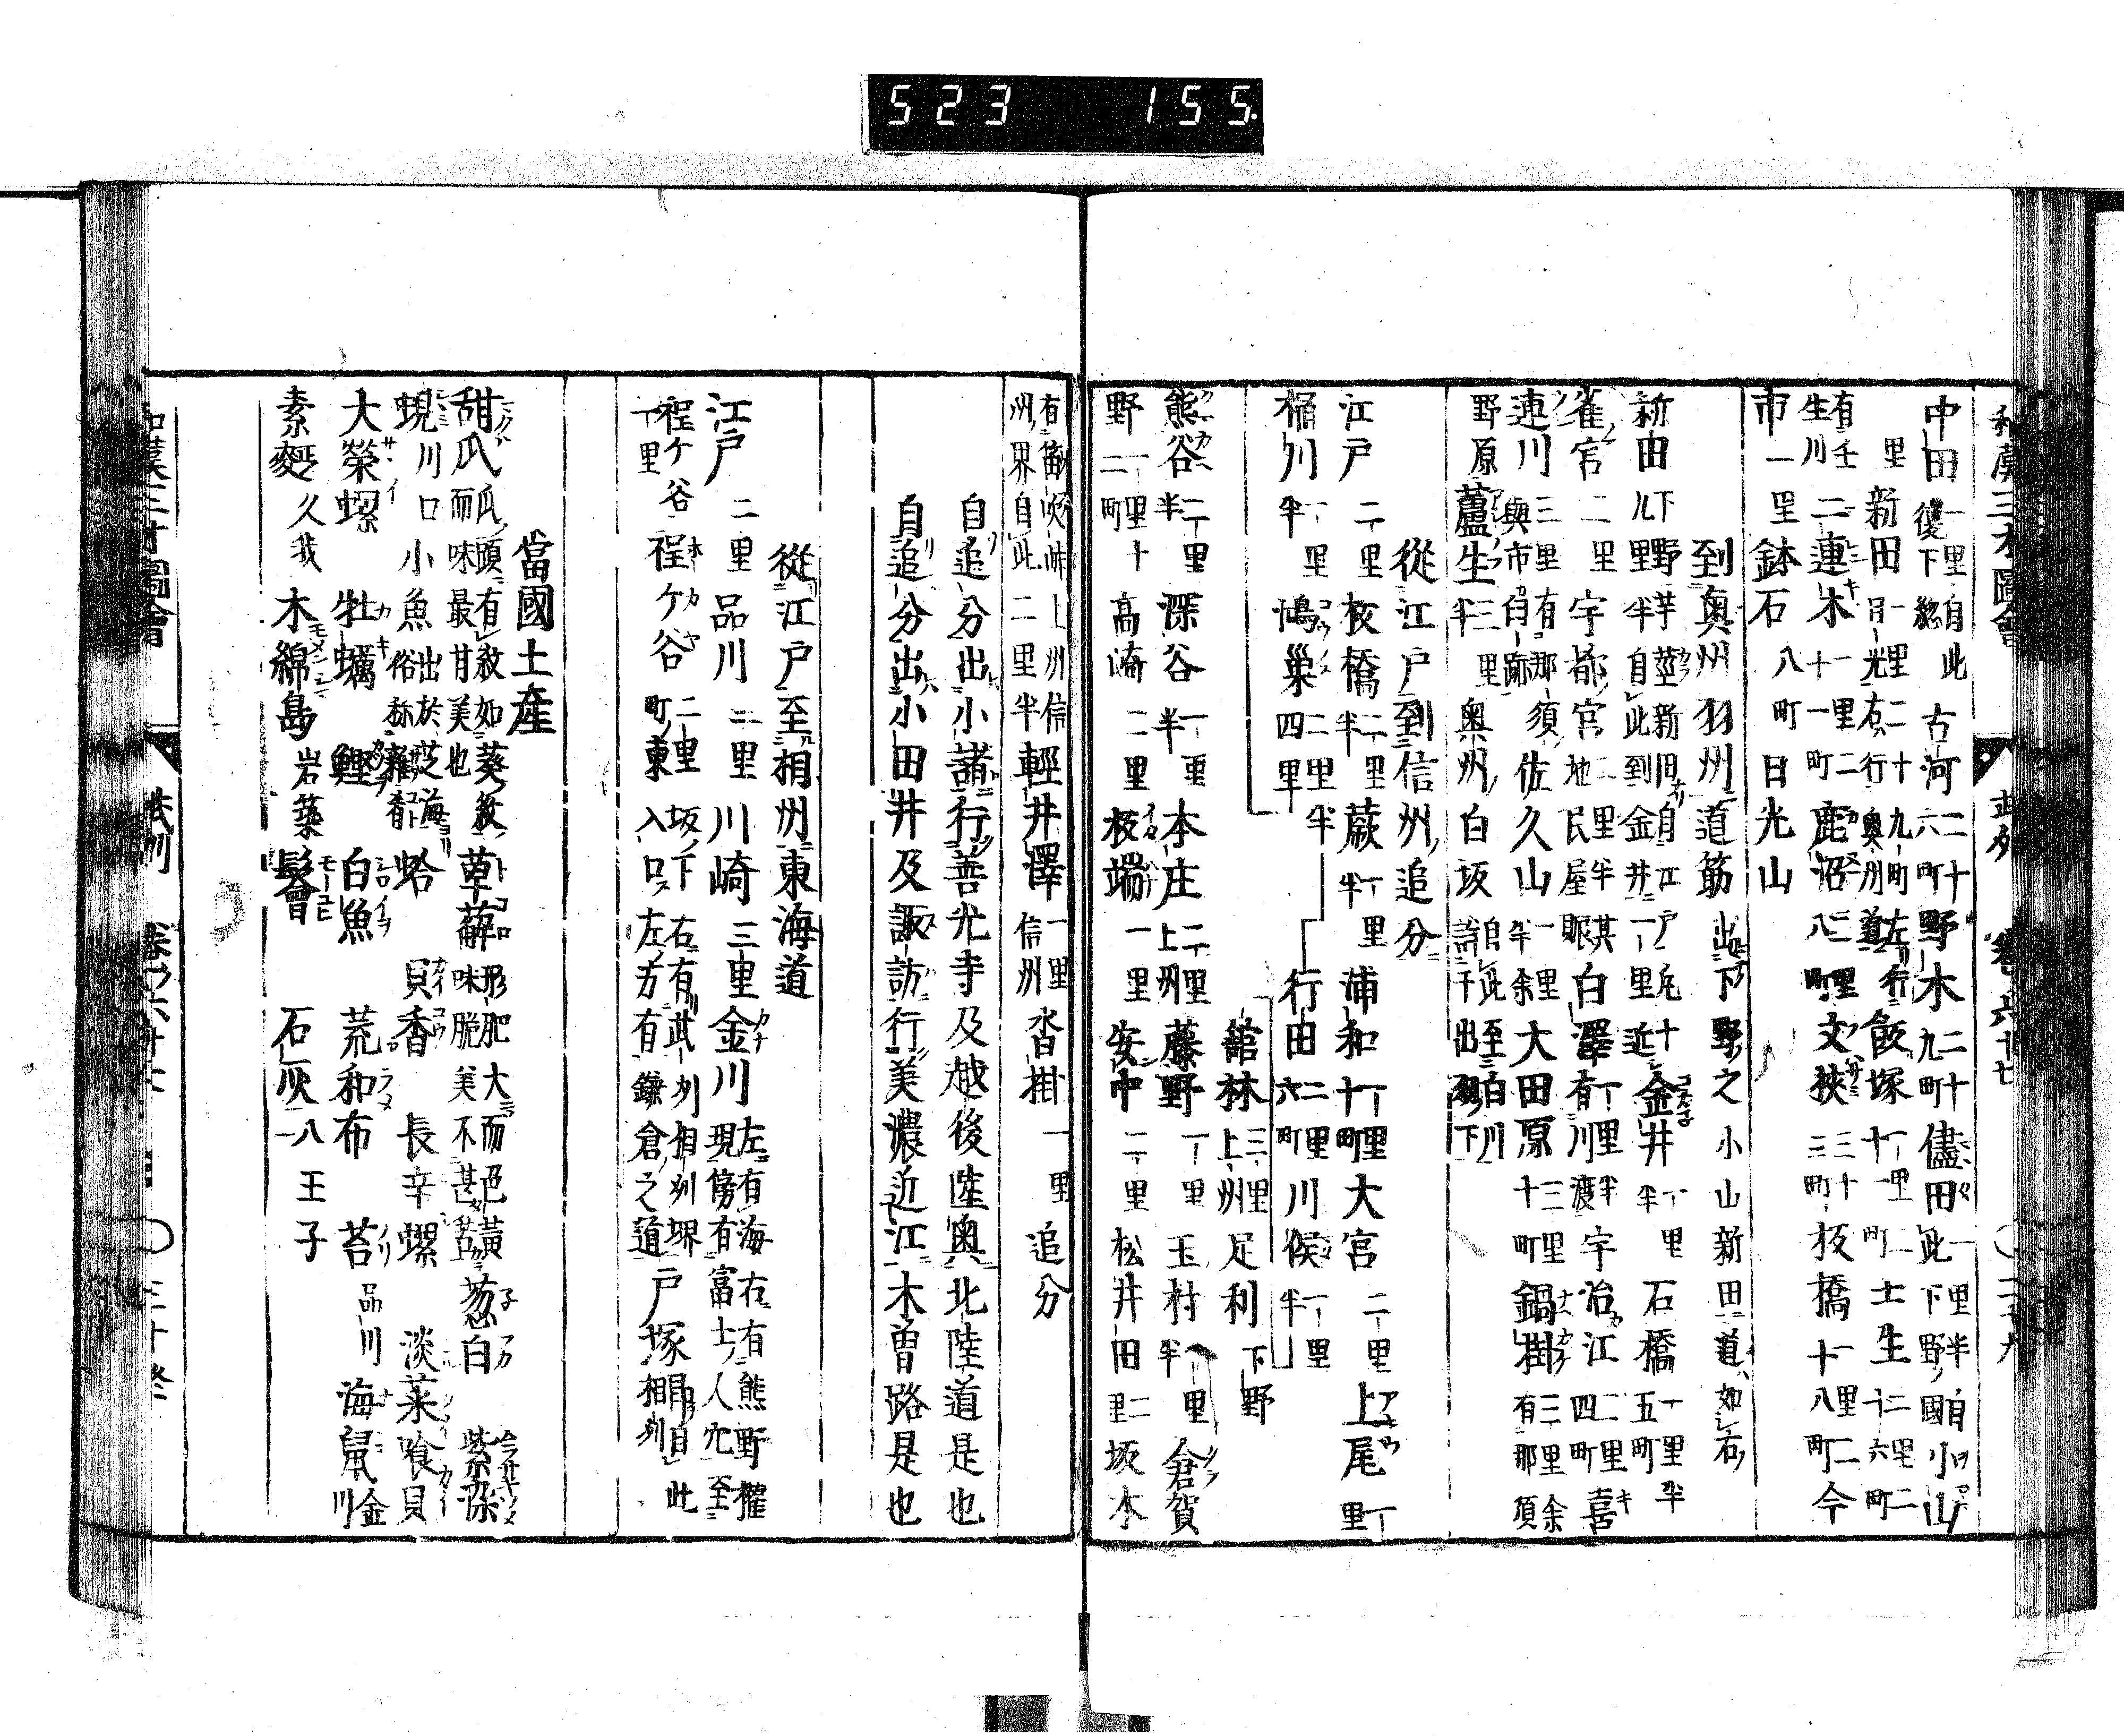 523 155
和漢三才圖會 武州 卷ノ六十七 〇二十九
中田 一里自此復下総 古河 二十六町 野木 二十九町 儘田 一里半自此下野ノ國 小山
里 新田 一里二十九町左行日光右行奥州道 飯塚 一里十一町 士生 二里二十六町
有壬生川 二連木 一里二十一町 鹿沼 二里八町 文挾 三十三町 板橋 一里二十八町 今
市 二里 鉢石 八町 日光山
到奥州羽州道筋 出下野之小山新田道如右
新田 下野芋莖新田自江戸凡十九里半自此到金井一里近 金井 一里半 石橋 一里半五町
雀宮 二里 宇都宮 二里半其地民屋賑 白澤 一里半有川渡 宇治江 二里四町 喜
連川 三里有那須與市旧跡 佐久山 一里半余 大田原 三里十町 鍋掛 三里余有那須
野原 蘆生 三里半 奥州白坂 自此至白川
從江戸到信州追分
江戸 二里 板橋 二里半 蕨 一里半 浦和 一里十町 大宮 二里 上尾 一里
桶川 一里半 鴻巣 二里半四里 行田 二里六町 川俣 一里半
舘林 三里上州 足利 下野
熊谷 二里半 深谷 一里半 本庄 二里上州 藤野 一里 玉村 一里半 倉賀
野 一里十二町 高崎 二里 板端 一里 安中 二里 松井田 二里 坂本
有笛吹峠上州信州界自此二里半 輕井澤 一里信州 沓掛 一里 追分
自追分出小諸行善光寺及越後陸奥北陸道是也
自追分出小田井及諏訪行美濃近江木曽路是也
從江戸至相州東海道
江戸 二里 品川 二里 川崎 三里 金川 左有海右有熊野權現傍有富士人穴至
程ケ谷一里 程ケ谷 二里町東坂下入口左方右有武州相州堺有鎌倉之道 戸塚 相州
當國土産
甜瓜 瓜頭有紋如葵紋而味最甘美也 草薢 形肥大而色黄味脆美不甚苦 葱白 紫染
蜆 川口 小魚 出於芝海俗称雜肴 蛤 貝香 長辛螺 淡菜喰貝
大榮螺 牡蠣 鰹 白魚 荒和布 苔 品川 海鼠 金川
素麪 久我 木綿島 岩築 髻 石灰 八王子
和漢三才圖會 武州 卷ノ六十七 〇三十終